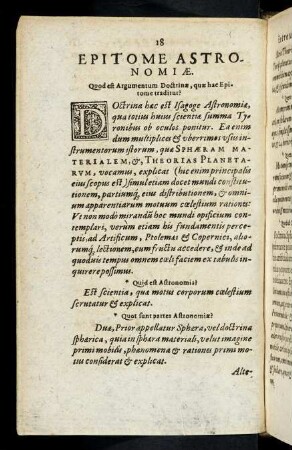 18
EPITOME ASTRO-
NOMIÆ.
Quod est Argumentum Doctrinæ, quæ hac Epi-
tome traditur?
DOctrina hæc est Isagoge Astronomiæ,
qua totius huius scientiæ summa Ty-
ronibus ob oculos ponitur. Ea enim
dum multiplices & vberrimos vsus in-
strumentorum istorum, quæ SPHÆRAM MA-
TERIALEM, &, THEORIAS PLANETA-
RVM, vocamus, explicat (hic enim principalis
eius scopus est) simul etiam docet mundi constitu-
tionem, partiumq; eius distributionem, & omni-
um apparentiarum motuum cœlestium rationes:
Vt non modo mirandū hoc mundi opificium con-
templari, verum etiam his fundamentis perce-
ptis, ad Artificum, Ptolemæi & Copernici, alio-
rumq; lectionem, cum fructu accedere, & inde ad
quoduis tempus omnem cœli faciem ex tabulis in-
quirere possimus.
* Quid est Astronomia?
Est scientia, quæ motus corporum cœlestium
scrutatur & explicat.
* Quot sunt partes Astronomiæ?
Duæ, Prior appellatur Sphæra, vel doctrina
sphærica, quia in sphæra materiali, velut imagine
primi mobilis, phænomena & rationes primi mo-
tus considerat & explicat.
Alte-